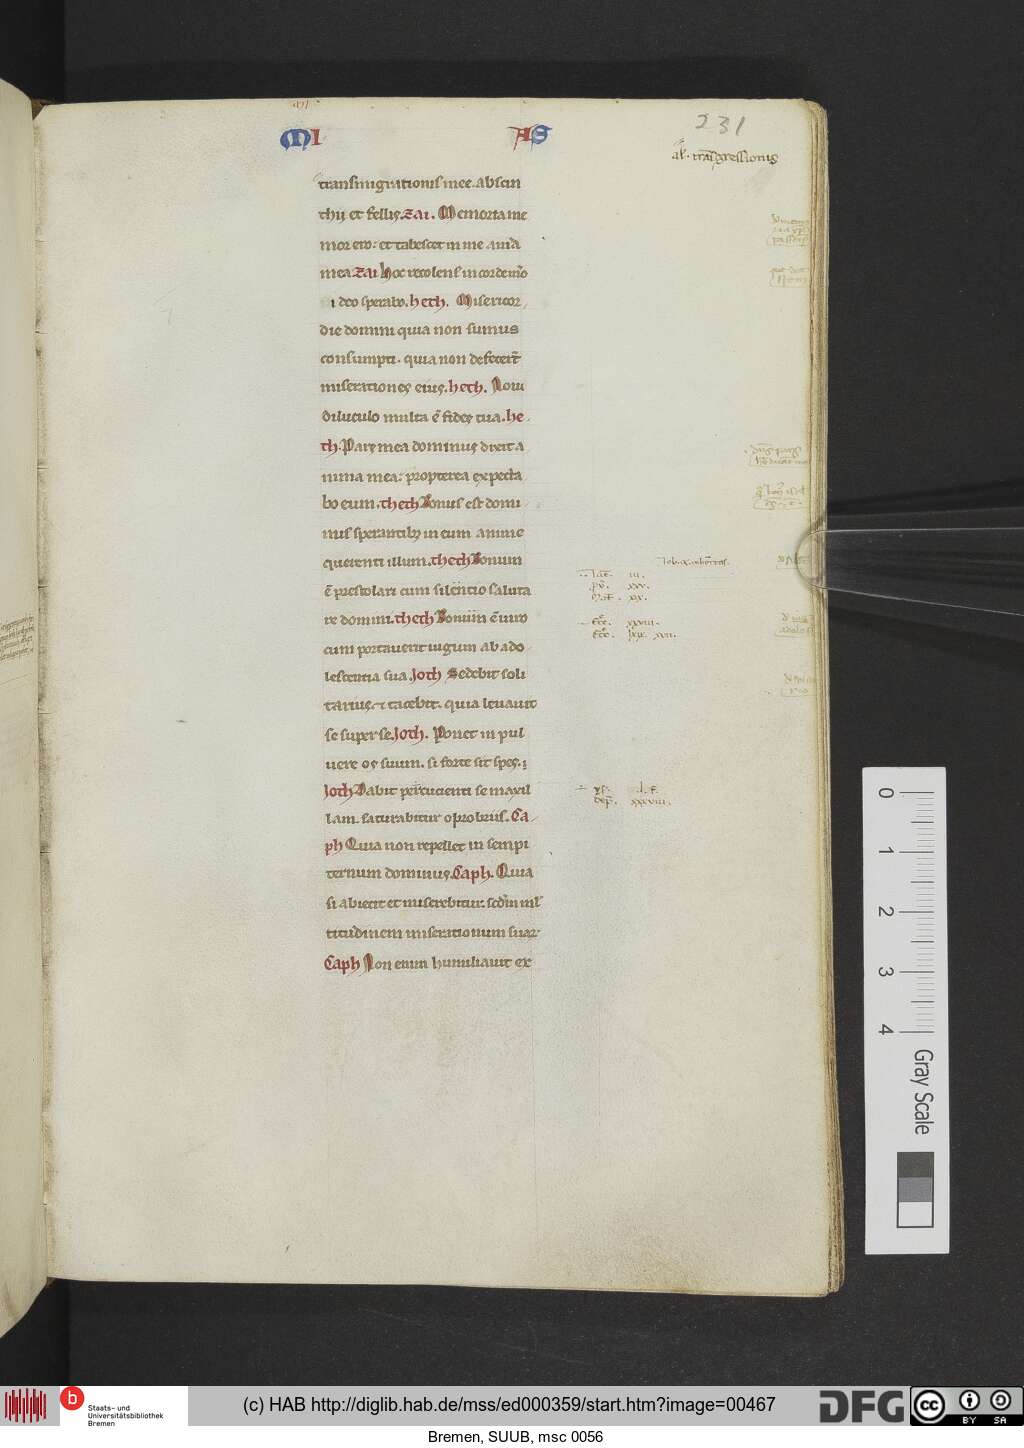 MI AS
231
al'. trãsgressionis
transmigrationis mee. abscin
thii et fellis. Zai. Memoria me
mor ero: et tabescet in me aĩa
mea. Zai Hoc recolens in corde mõ
i deo sperabo. heth. Misericor
die domini quia non sumus
consumpti. quia non defecer̃t
miserationes eius. heth. Noui
diluculo multa ẽ fides tua. he
th. Pars mea dominus dixit a
nima mea: propterea expecta
bo eum. theth Bonus est domi
nus sperantibꝫ in eum anime
querenti illum. theth Bonum
ẽ prestolari cum silentio saluta
re domini. theth Bonum ẽ uiro
cum portauerit iugum ab ado
lescentia sua. Joth Sedebit soli
tarius ⁊ tacebit. quia leuauit
se super se. Joth. Ponet in pul
uere os suum. si forte sit spes.
Joth Dabit percucienti se maxil
lam. saturabitur opprobriis. Ca
ph Quia non repellet in sempi
ternum dominus. Caph. Quia
si abiecit et miserebitur. scdm̃ ml'
titudinem miserationum suar
Caph Non enim humiliauit ex
xxxviii.
0 1 2 3 4
Gray Scale
b Staats- und
Universitätsbibliothek
Bremen
(c) HAB http://diglib.hab.de/mss/ed000359/start.htm?image=00467
DFG
cc BY SA
Bremen, SUUB, msc 0056